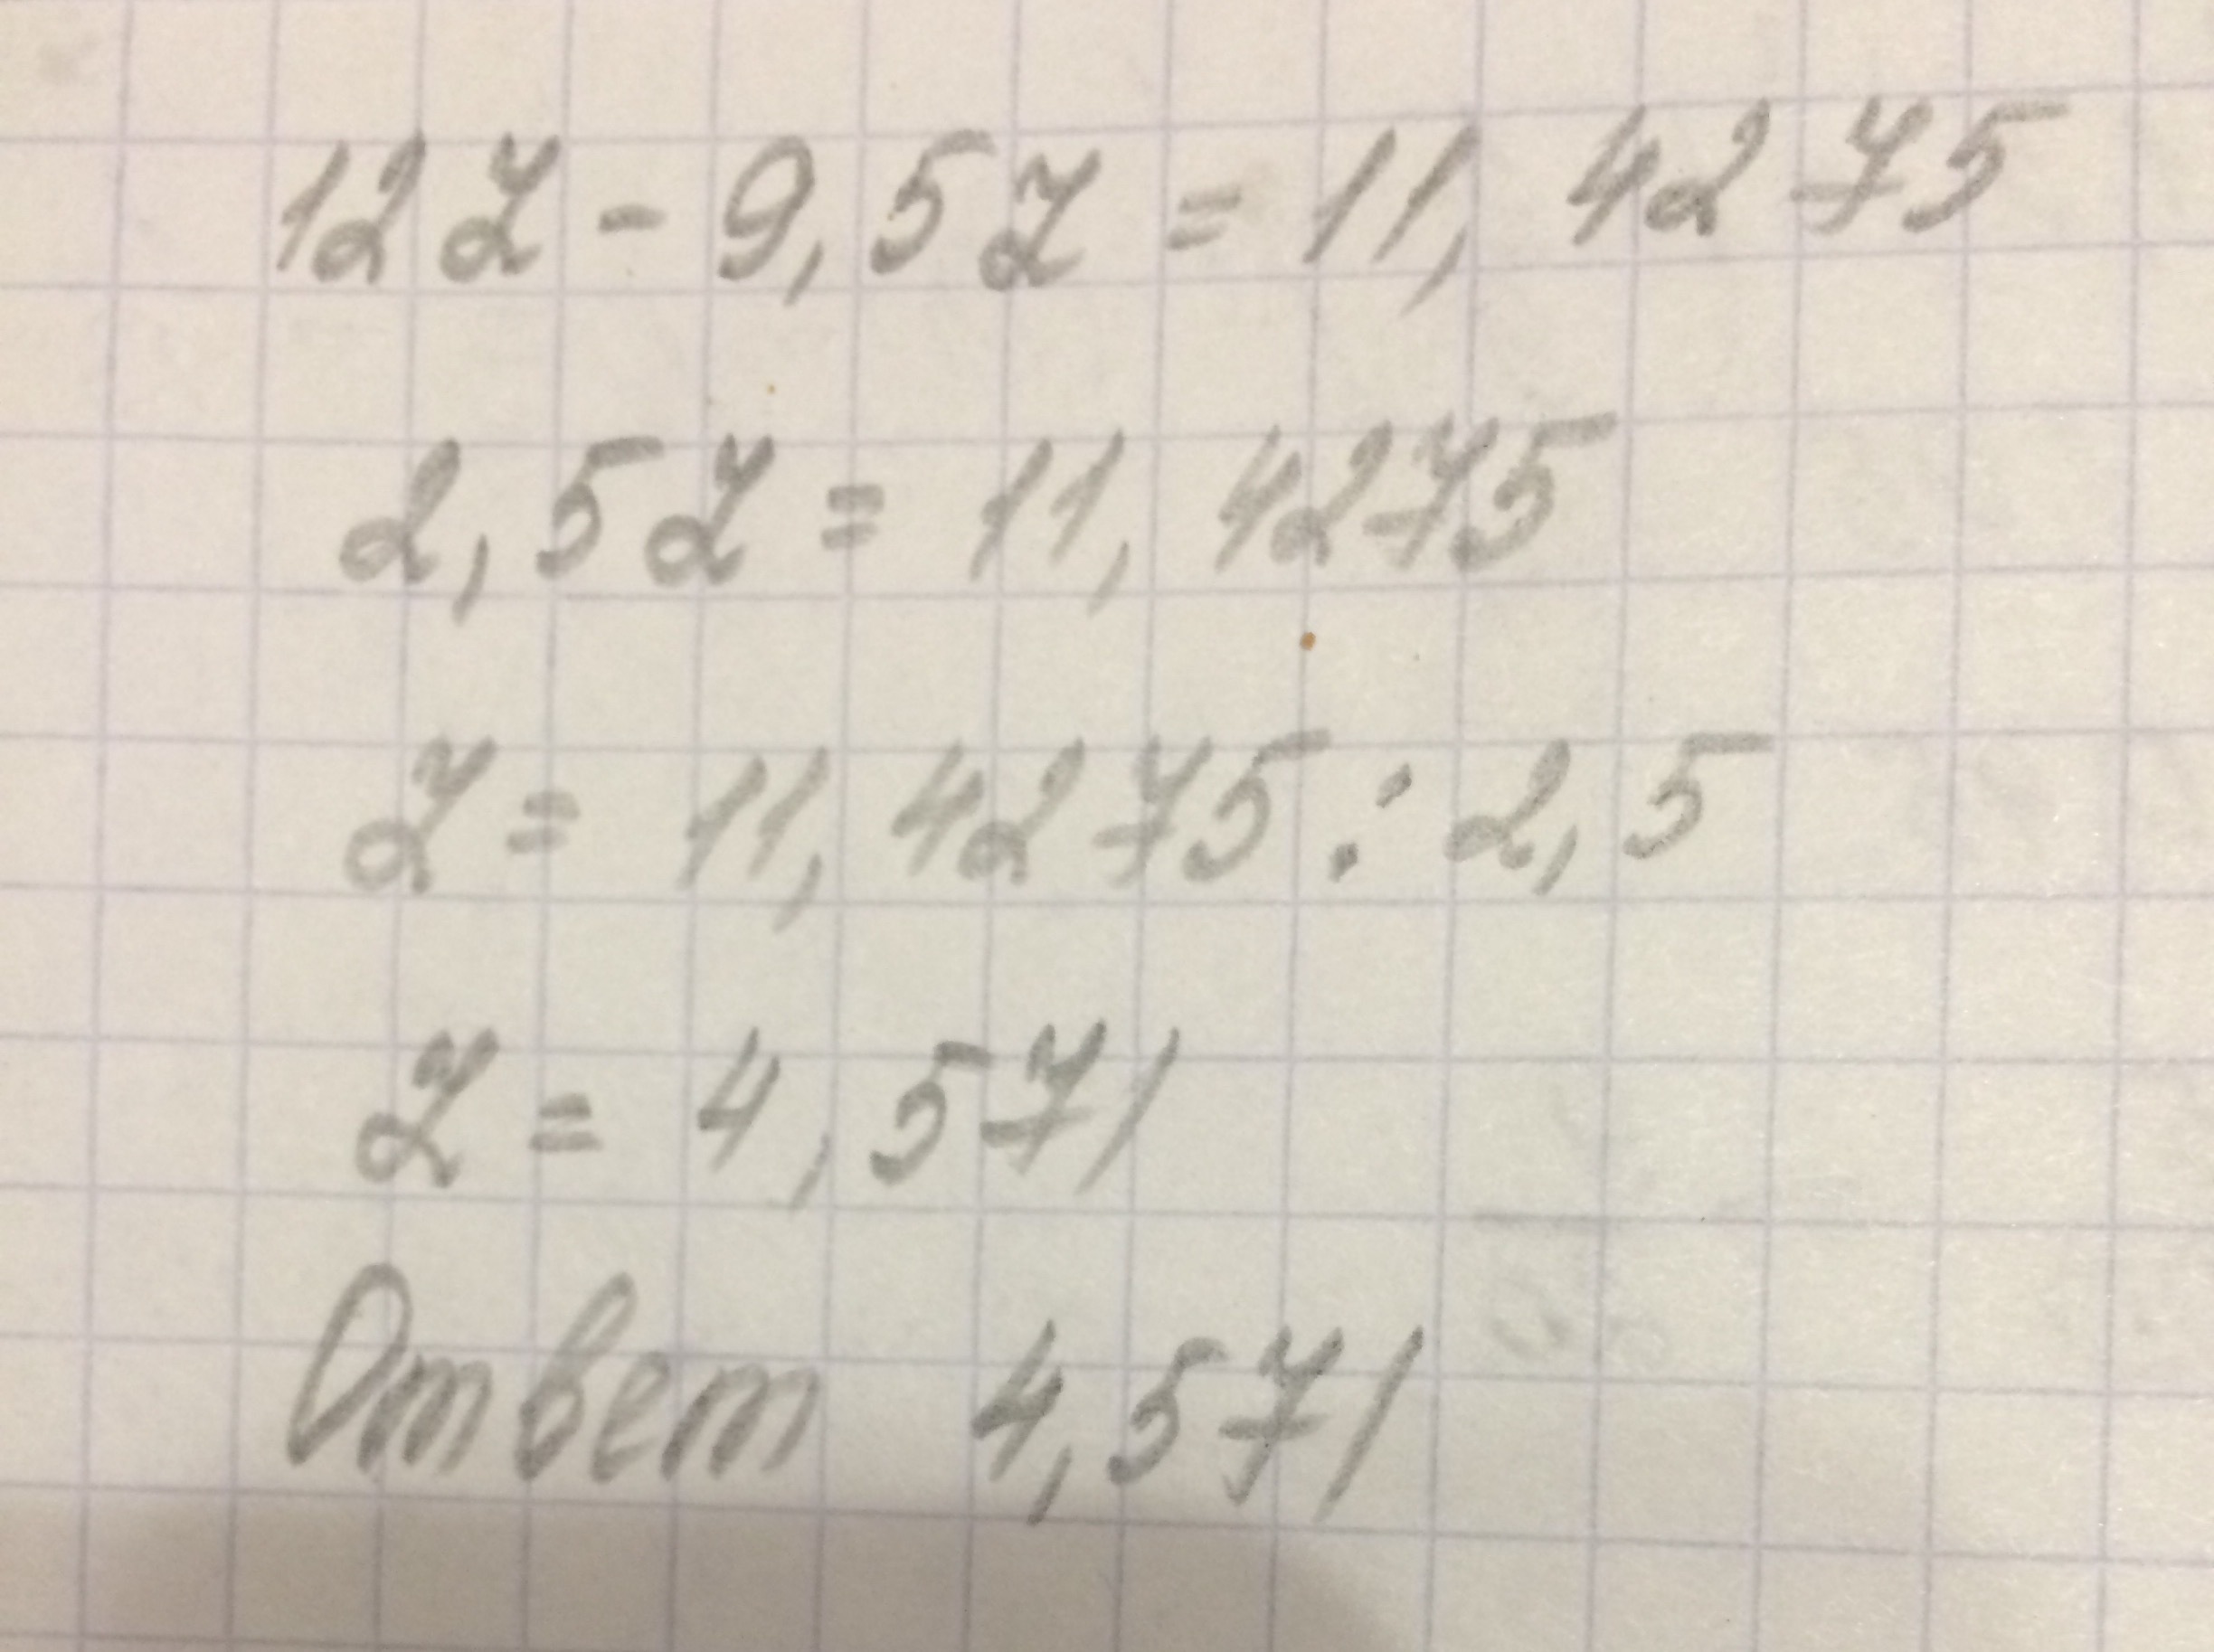 12z - 9,5z = 11,4275
2,5z = 11,4275
z = 11,4275 : 2,5
z = 4,571
Ответ 4,571